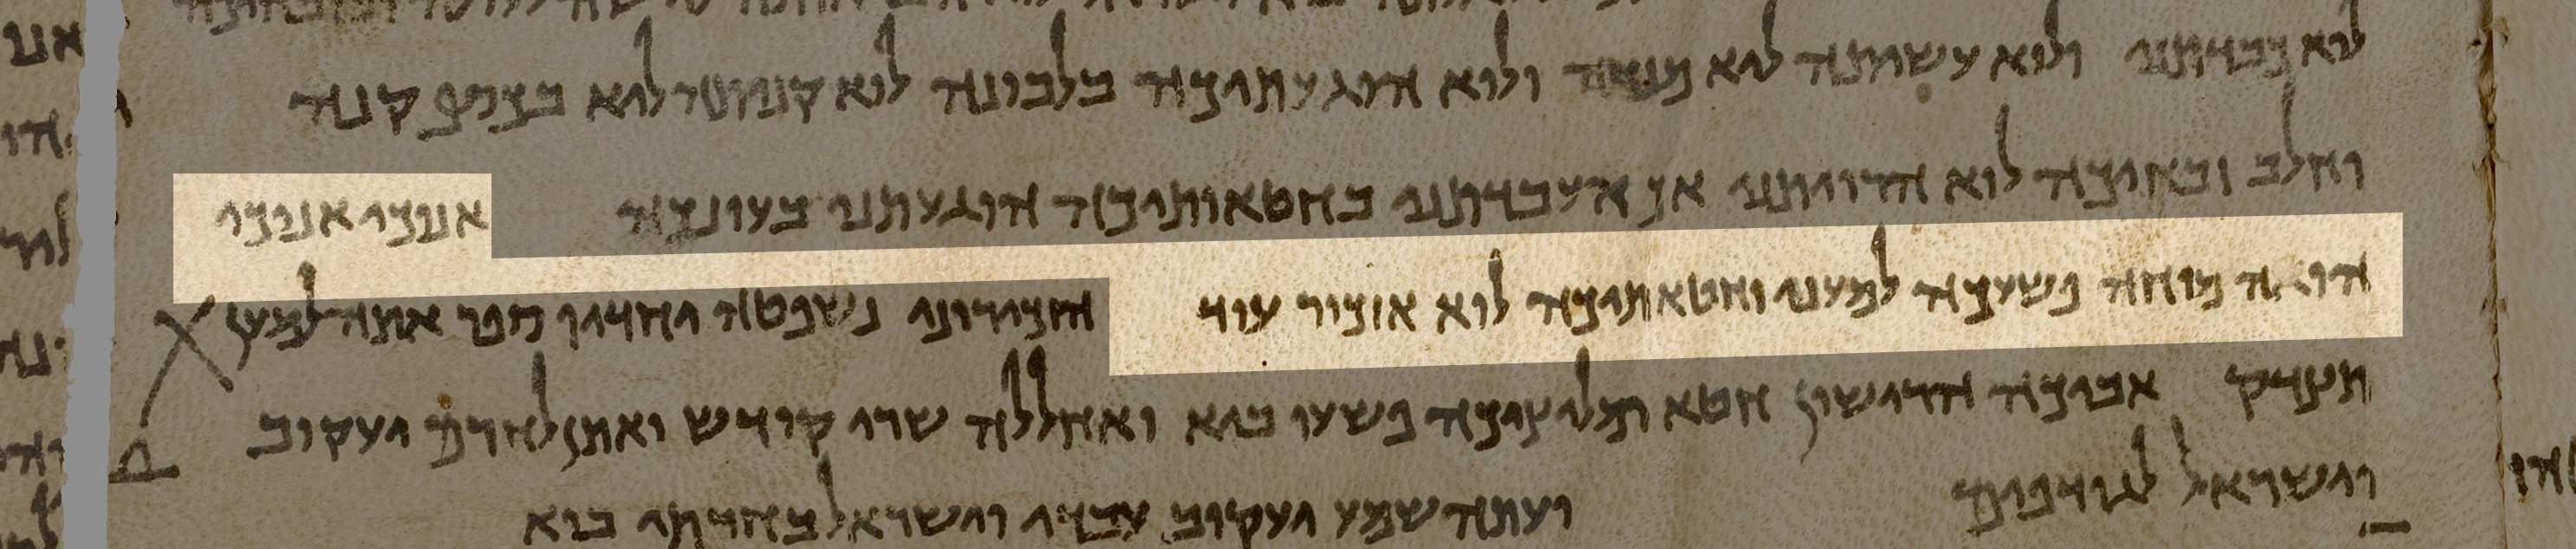 לוא כבדתני ולוא עשיתה ליא מנחה ולוא הוגעתיכה בלבונה לוא קניתי ליא בכסף קנה
וחלב זבחיכה לוא הרויתני אך העבדתני בחטאותיכה הוגעתני בעוונכה אנוכי אנוכי
הואה מוחה פשעכה למעני וחטאתיכה לוא אזכור עוד הזכירוני נשפטה יחדיו ספר אתה למען
תצדק אביכה הרישון חטא ומליציכה פשעו ביא ואחללה שרי קודש ואתן לחרם יעקוב
וישראל לגודפים ועתה שמע יעקוב עבדי וישראל בחרתי בוא